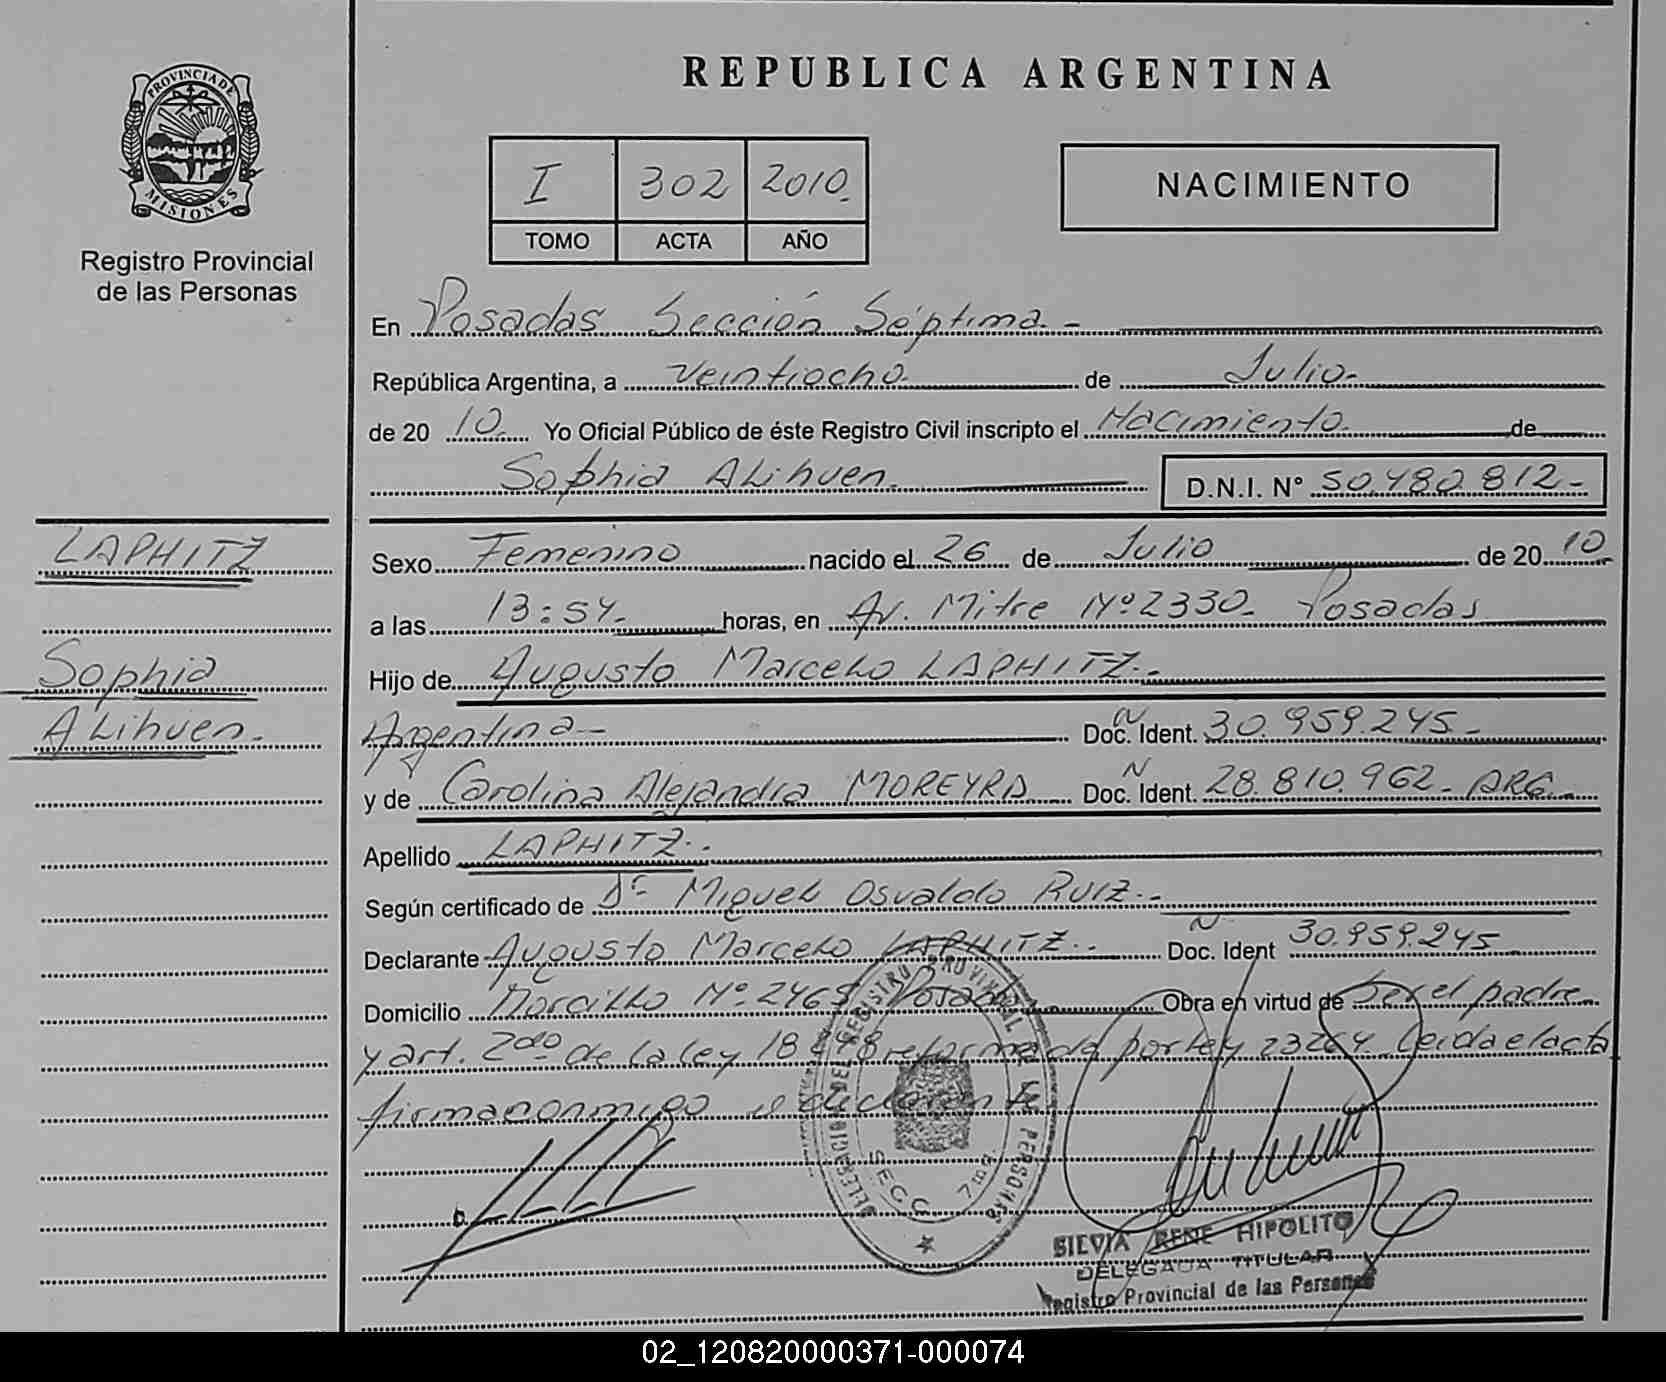 PROVINCIA DE
MISIONES
Registro Provincial
de las Personas
REPUBLICA ARGENTINA
I 302 2010.
TOMO ACTA AÑO
NACIMIENTO
En Posadas Sección Séptima.-
República Argentina, a Veintiocho. de Julio-
de 20 10. Yo Oficial Público de éste Registro Civil inscripto el Nacimiento. de
Sophia ALihuen. D.N.I. N° 50.480.812-
LAPHITZ
Sophia
ALihuen.
Sexo Femenino nacido el 26 de Julio de 20 10
a las 13:54. horas, en Av. Mitre Nº2330. Posadas
Hijo de Augusto Marcelo LAPHITZ.-
Argentina- Doc. N Ident. 30.959.245.-
y de Carolina Alejandra MOREYRA Doc. N Ident. 28.810.962- ARG.
Apellido LAPHITZ..
Según certificado de Dr Miguel Osvaldo RUIZ.-
Declarante Augusto Marcelo LAPHITZ.. Doc. N Ident 30.959.245
Domicilio Morcillo Nº.2465 Posadas Obra en virtud de Ser el padre
y art. 2do de La Ley 18.248 reformada por Ley 23264. Leida el acta
firma conmigo el declarante
DELEGACION DEL REGISTRO PROVINCIAL PERSONAS
SECC 7ma
SILVIA RENE HIPOLITO
DELEGADA TITULAR
Registro Provincial de las Personas
02_120820000371-000074